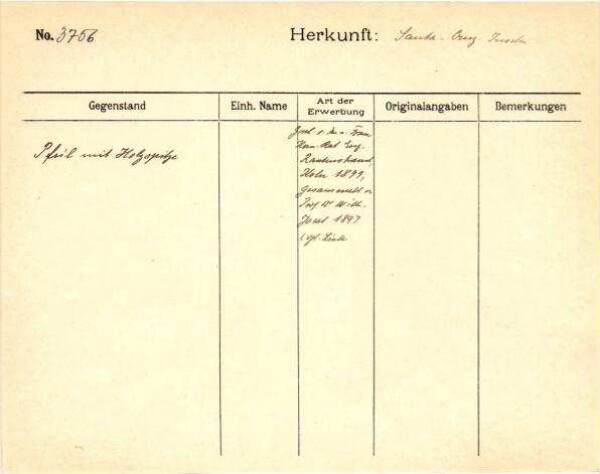 No. 3756
Herkunft: Santa-Cruz Inseln
Gegenstand
Einh. Name
Art der
Erwerbung
Originalangaben
Bemerkungen
Pfeil mit Holzspitze
Gesch. v. Frau
Rat Eug.
Rautenstrauch
Köln 1899,
gesammelt v.
Prof Dr Wilh.
Joest 1897